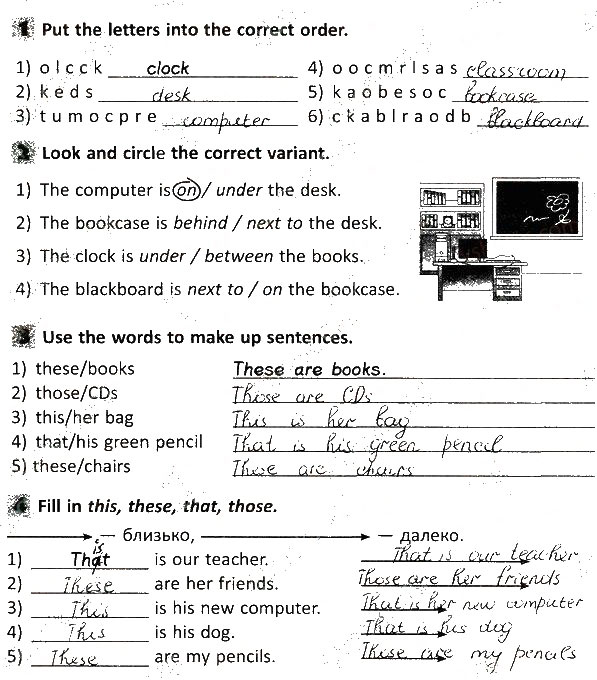 1 Put the letters into the correct order.
1) o l c c k clock 4) o o c m r l s a s classroom
2) k e d s desk 5) k a o b e s o c bookcase
3) t u m o c p r e computer 6) c k a b l r a o d b blackboard
2 Look and circle the correct variant.
1) The computer is on / under the desk.
2) The bookcase is behind / next to the desk.
3) The clock is under / between the books.
4) The blackboard is next to / on the bookcase.
3 Use the words to make up sentences.
1) these/books These are books.
2) those/CDs Those are CDs
3) this/her bag This is her bag
4) that/his green pencil That is his green pencil
5) these/chairs These are chairs
4 Fill in this, these, that, those.
— близько, — далеко.
1) That is our teacher. That is our teacher
2) These are her friends. Those are her friends
3) This is his new computer. That is her new computer
4) This is his dog. That is his dog
5) These are my pencils. Those are my pencils